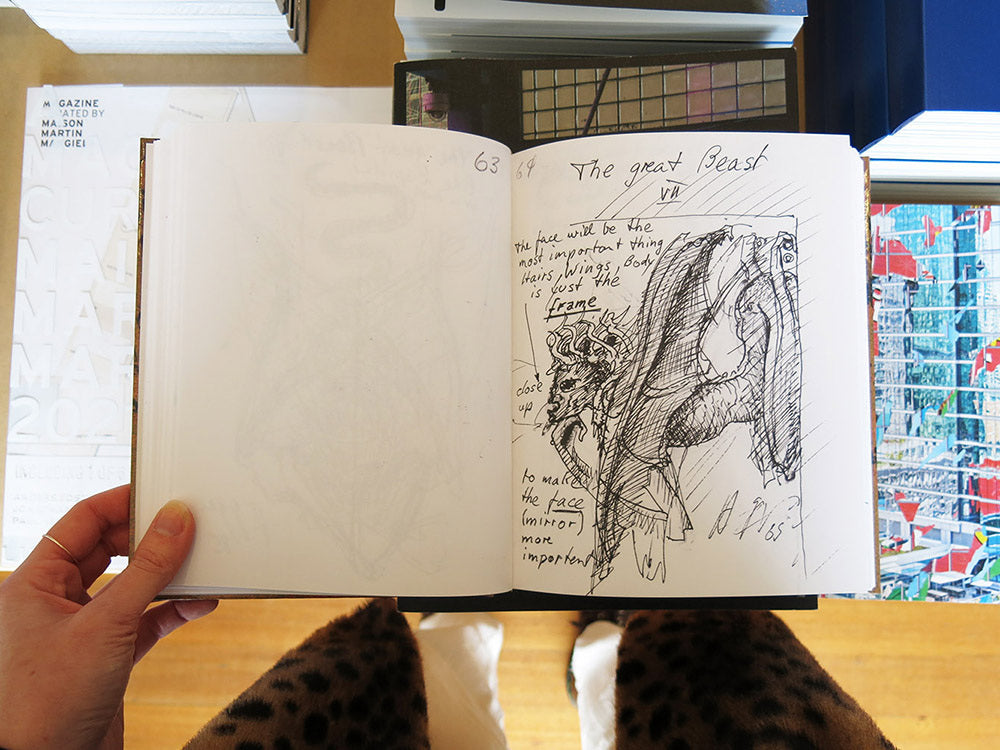 MAGAZINE
CURATED BY
MAISON
MARTIN
MARGIELA
MA
CUR
MAI
MAR
MAR
202
INCLUDING
63
64
The great Beast
VII
the face will be the
most important thing
Hairs, Wings, Body
is just the
frame
close
up
to make
the face
(mirror)
more
important